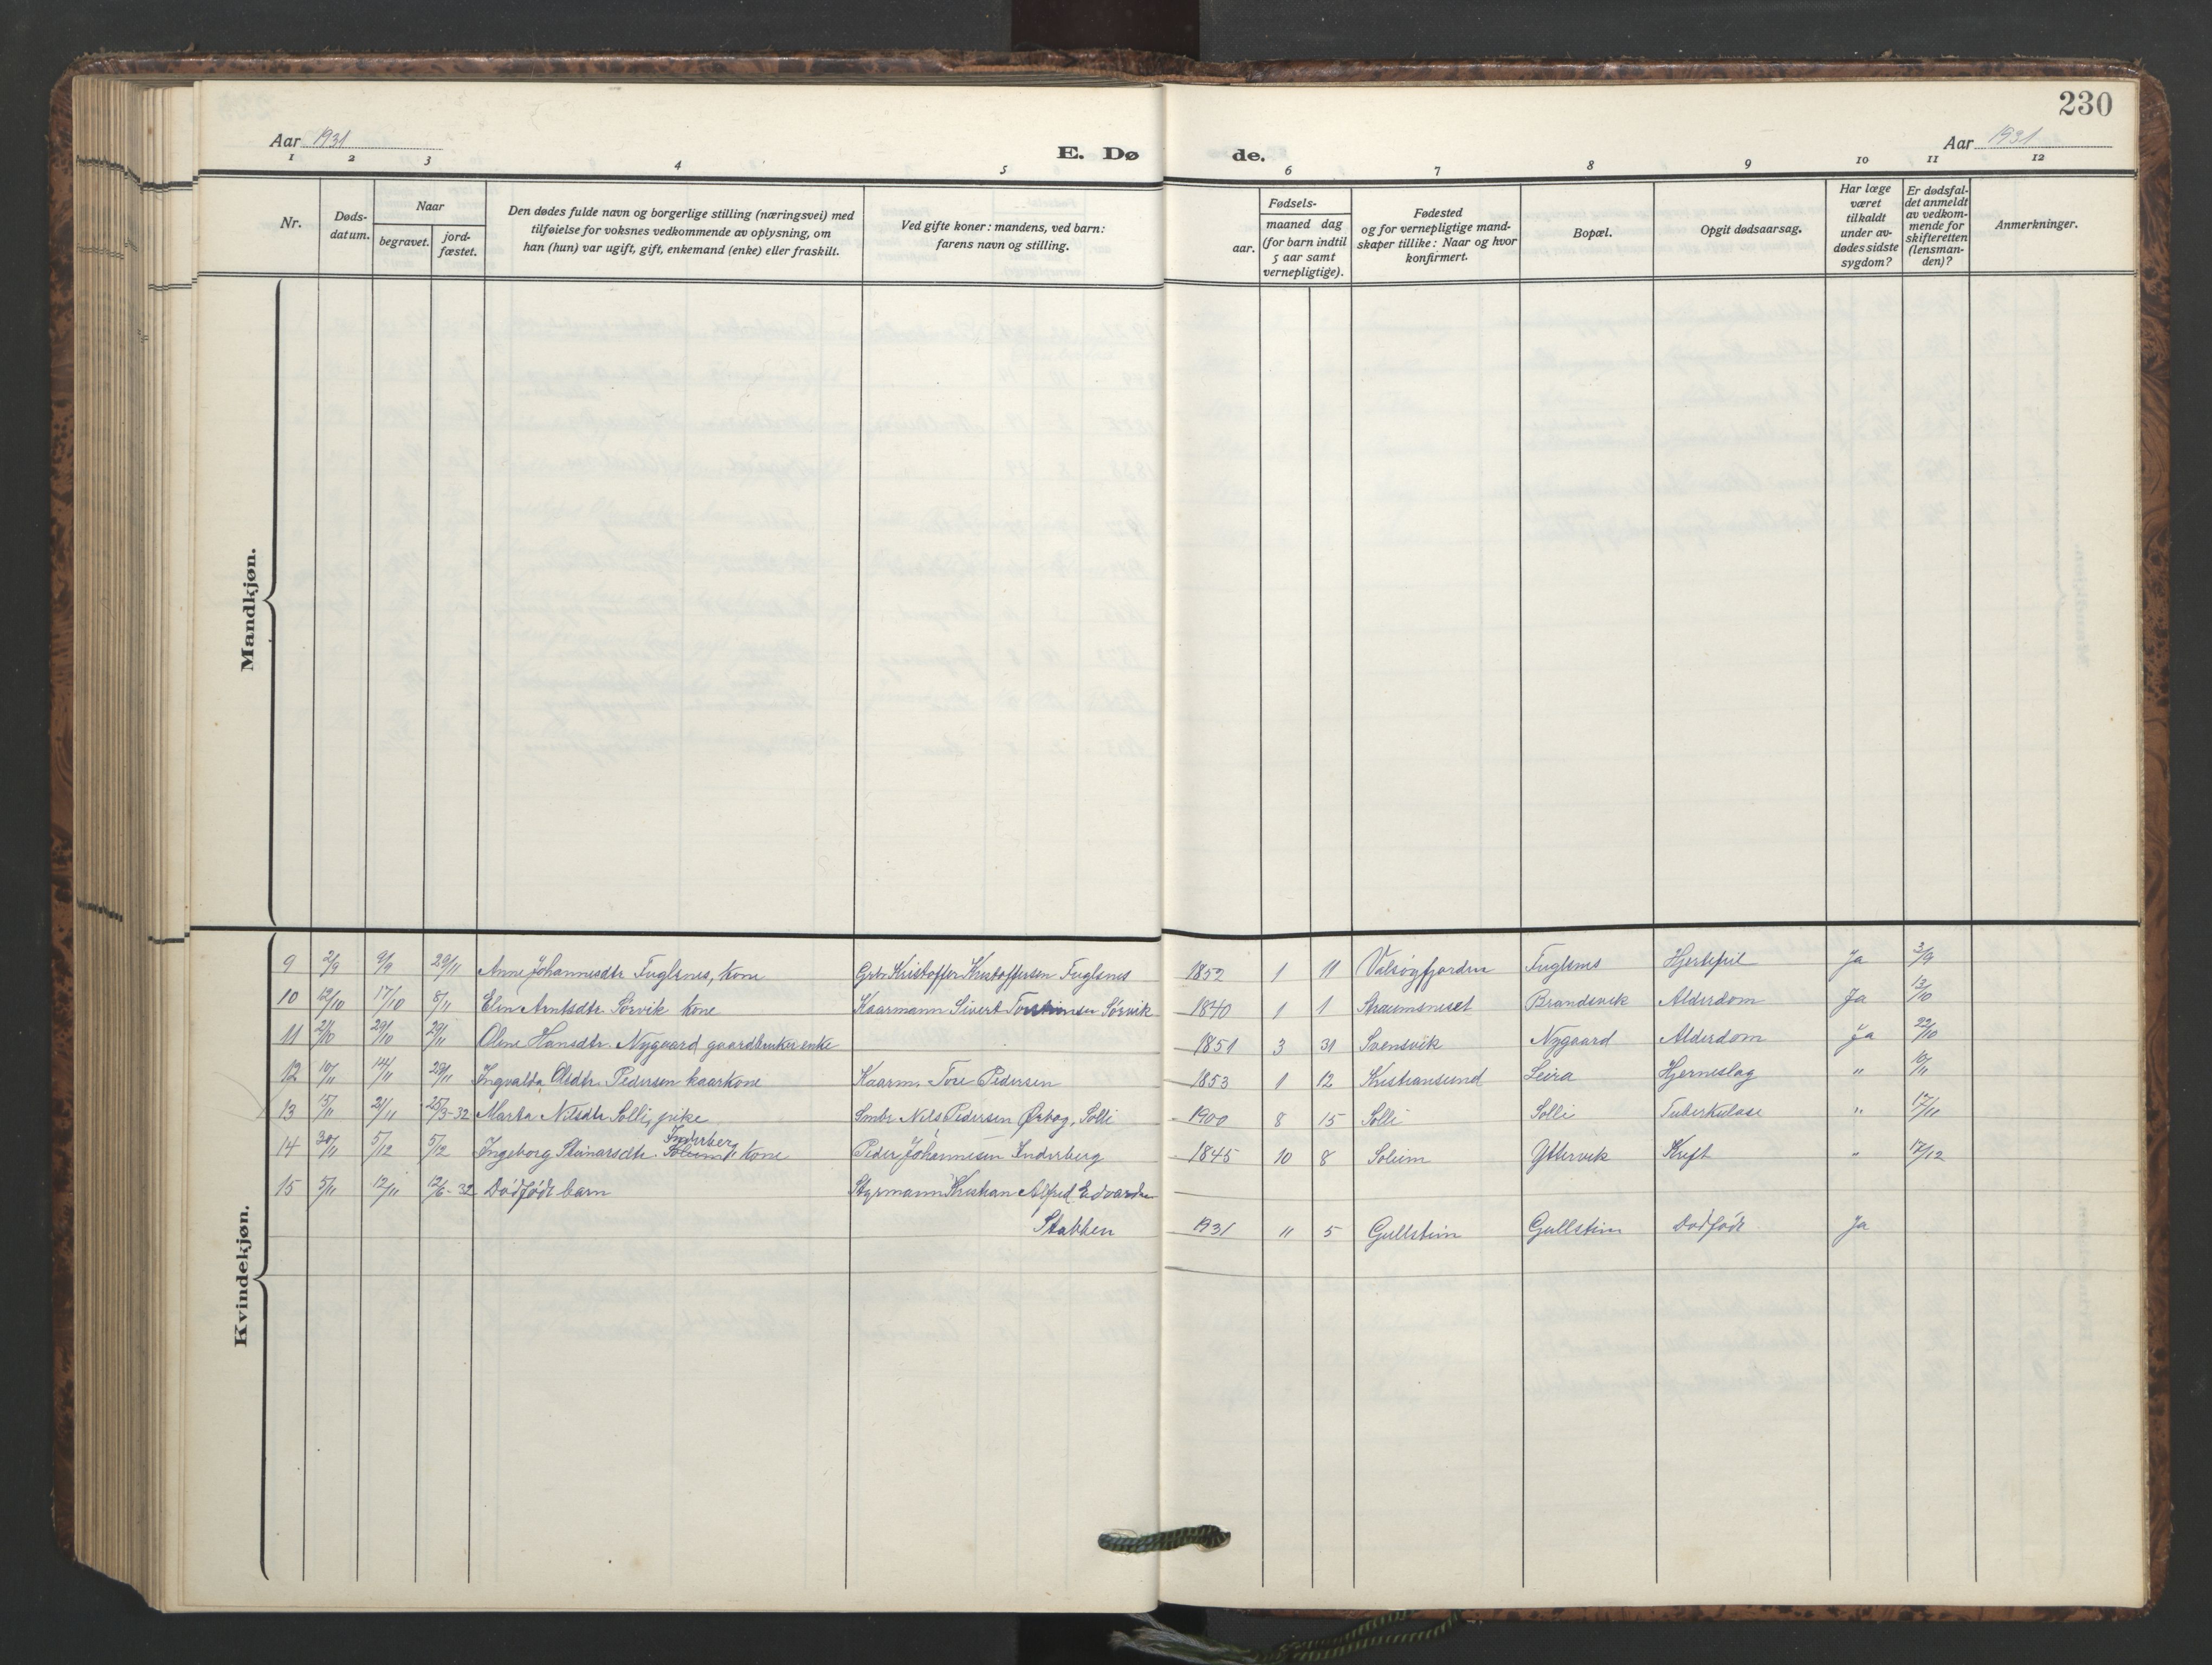 230
Aar 1931
E. Dø
de.
Aar 1931
1 2 3 4 5 6 7 8 9 10 11 12
Nr.
Døds-
datum.
Naar
begravet.
jord-
fæstet.
Den dødes fulde navn og borgerlige stilling (næringsvei) med
tilføielse for voksnes vedkommende av oplysning, om
han (hun) var ugift, gift, enkemand (enke) eller fraskilt.
Ved gifte koner: mandens, ved barn:
farens navn og stilling.
Fødsels-
aar.
maaned dag
(for barn indtil
5 aar samt
vernepligtige).
Fødested
og for vernepligtige mand-
skaper tillike: Naar og hvor
konfirmert.
Bopæl.
Opgit dødsaarsag.
Har læge
været
tilkaldt
under av-
dødes sidste
sygdom?
Er dødsfal-
det anmeldt
av vedkom-
mende for
skifteretten
(lensman-
den)?
Anmerkninger.
Mandkjøn.
Kvindekjøn.
9 2/9 9/9 29/11 Anne Johannesdtr Fuglsnes, kone Grbr. Kristoffer Kristoffersen Fuglsnes 1852 1 11 Valsøyfjorden Fuglsnes Hjertefeil Ja 3/9
10 12/10 17/10 8/11 Elen Arntsdtr. Sörvik kone Kaarmann Sivert Sörvik 1840 1 1 Straumsneset Brandsvik Alderdom Ja 13/10
11 21/10 29/10 29/11 Oline Hansdtr. Nygaard gaardbruker enke 1851 3 31 Svensvik Nygaard Alderdom Ja 22/10
12 10/11 14/11 29/11 Ingvalda Olsdtr. Pedersen kaarkone Kaarm. Tore Pedersen 1853 1 12 Kristiansund Leira Hjerneslag " 10/11
13 15/11 21/11 25/3-32 Marta Nilsdtr Solli, pike Smbr Nils Pedersen Ørbog, Solli 1900 8 15 Solli Solli Tuberkulose " 17/11
Inderberg
14 30/11 5/12 5/12 Ingeborg Steinarsdtr. Soleim, kone Peder Johannesen Inderberg 1845 10 8 Soleim Yttervik Kreft " 12/12
15 5/11 12/11 12/6-32 Dödfödt barn Styrmann Kristian Alfred Edvardsen
Stabben 1931 11 5 Gullstein Gullstein Dödfödt Ja